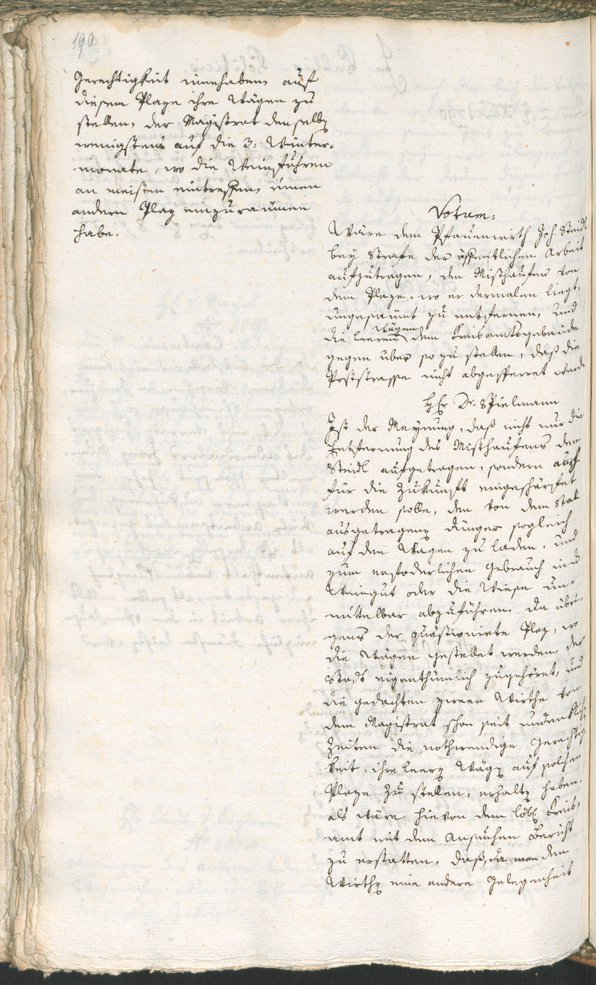 190
Gerechtigkeit innehaben auf
diesem Plaze ihre Wägen zu
stellen, der Magistrat denselb
wenigstens auf die 3: Winter-
monate, wo die Weinfuhren
am meisten eintreffen, einen
andern Plaz einzuraumen
habe.
Votum:
Wäre dem Pfauenwirth Joh Steidl
bey Strafe der öffentlichen Arbeit
aufzutragen, den Misthaufen von
dem Plaze, wo er dermalen liegt,
ungesaumt zu entfernen, und
die leeren Wägen dem Kreisamtsgebäude
gegen über so zu stellen, daß die
Poststrasse nicht abgesperret werde
Hr Dr. Spielmann
Ist der Meynung, daß nicht nur die
Entfernung des Misthaufens dem
Steidl aufgetragen, sondern auch
für die Zukunft eingeschärfet
werden solle, den von dem Stal
ausgetragenen Dünger sogleich
auf den Wagen zu laden, und
zum erforderlichen Gebrauch ins
Weingut oder die Wiese un-
mittelbar abzuführen. Da übri-
gens der quästionirte Plaz, wo
die Wägen gestellet werden, der
Stadt eigenthümlich zugehöret, und
die gedachten zween Wirthe von
dem Magistrat schon seit undenklich
Zeiten die nothwendige Gerechtig-
keit, ihre leere Wäge auf solchem
Plaze zu stellen, erhalten haben,
als wäre hievon dem löbl Kreis-
amt mit dem Ansuchen Bericht
zu erstatten, daß, da man den
Wirthen eine andere Gelegenheit